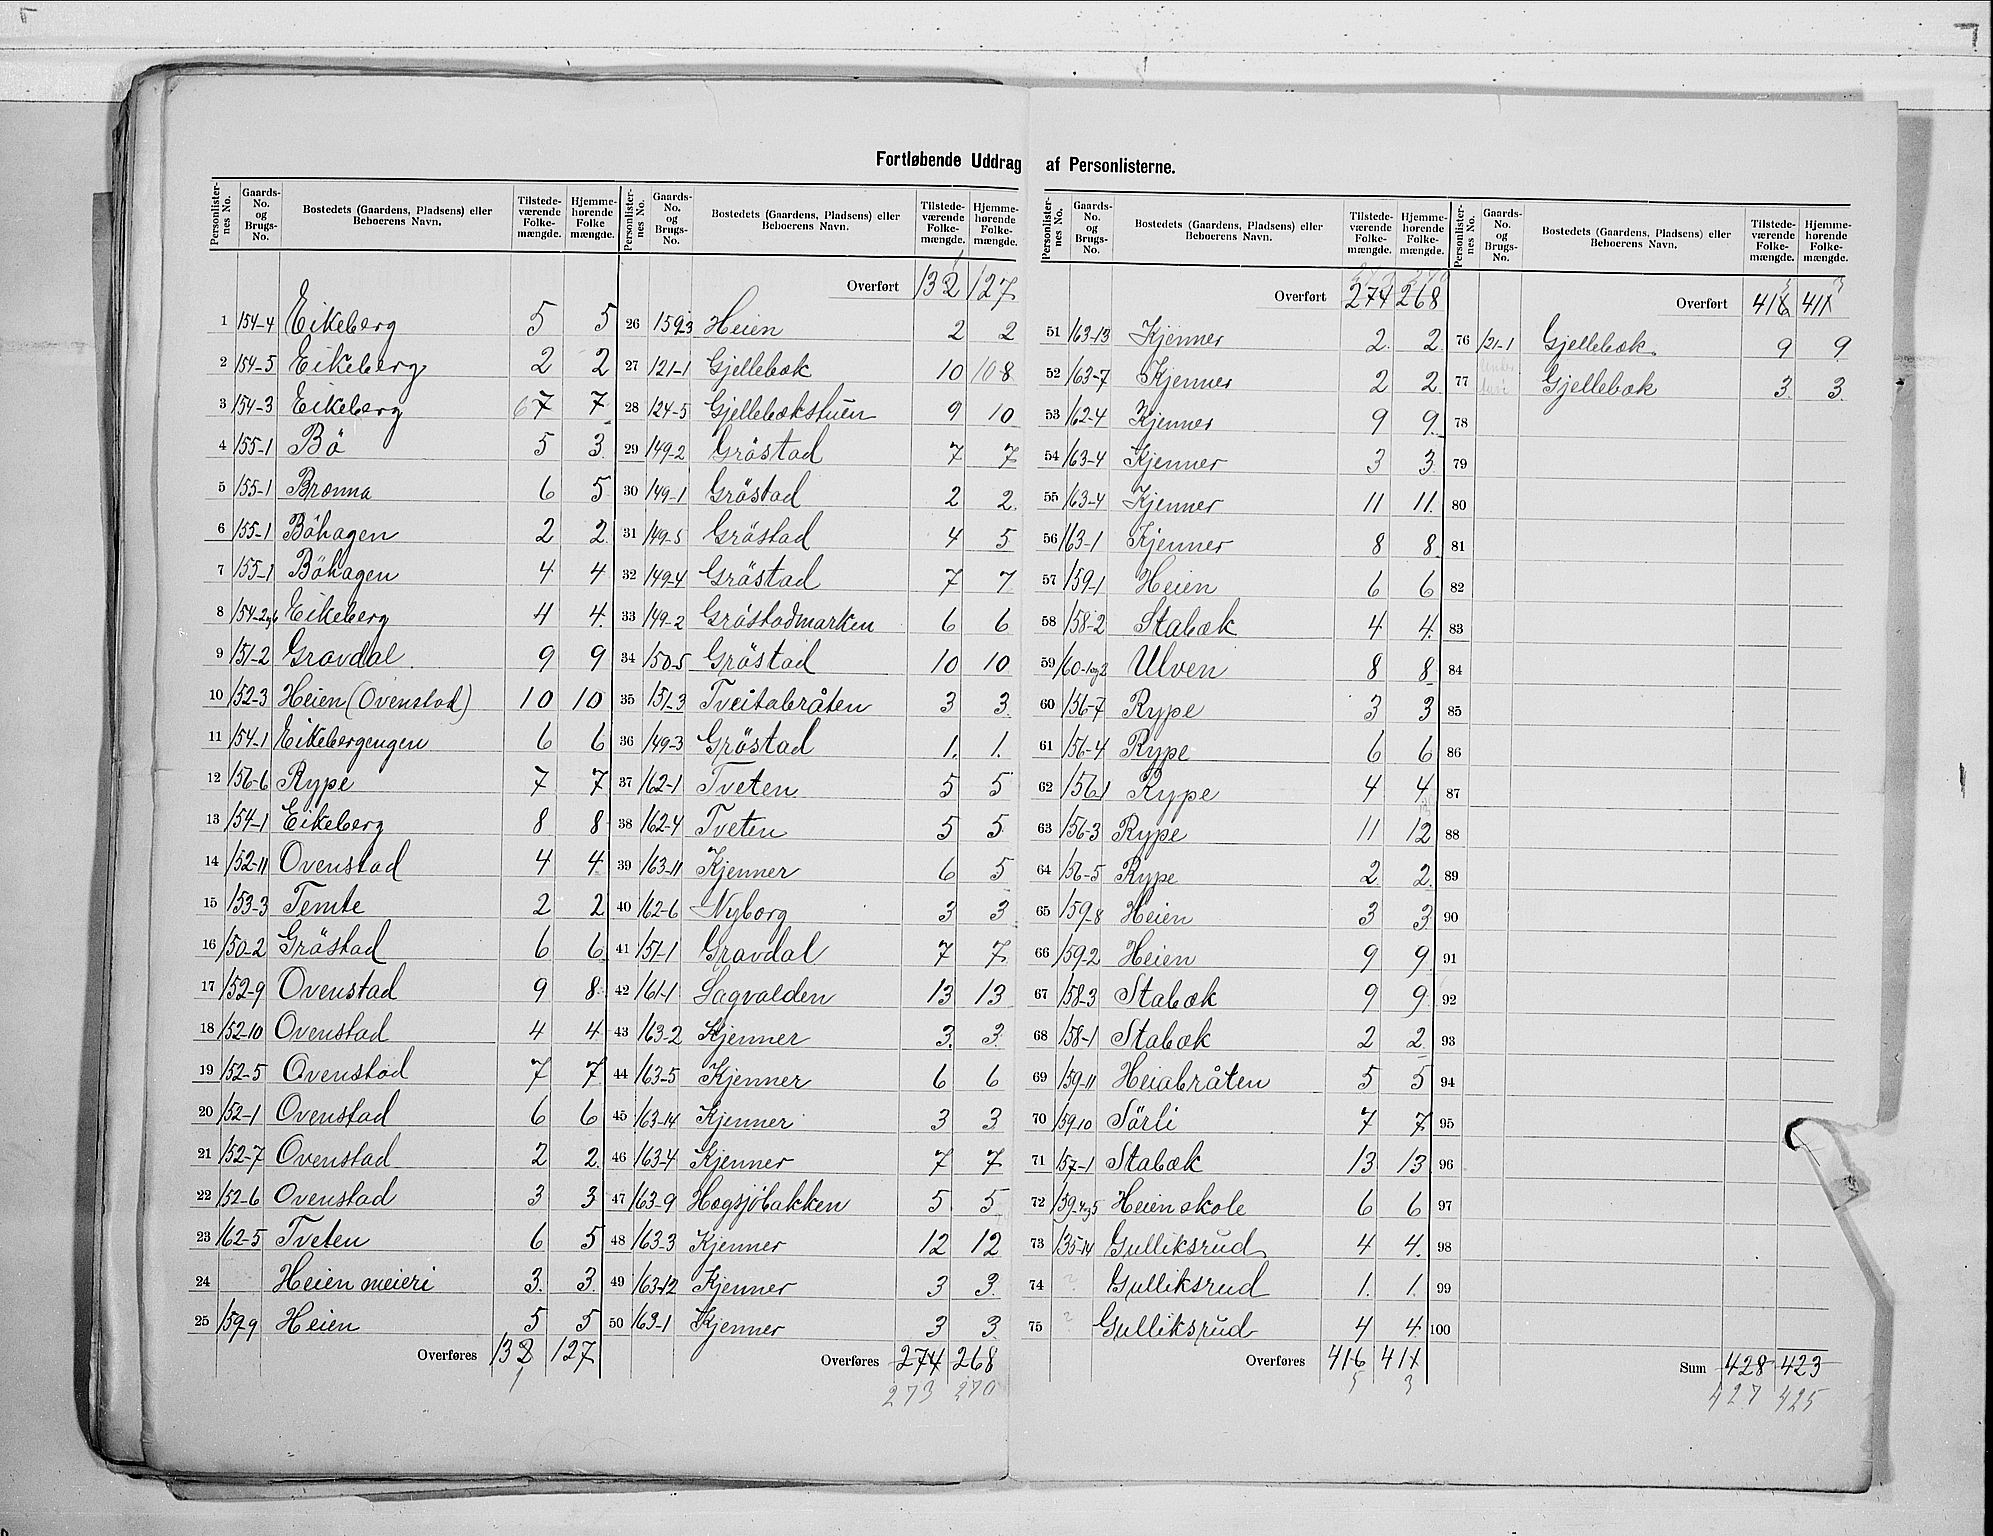 Fortløbende Uddrag af Personlisterne.
Personlisternes No. Gaards-No. og Brugs-No. Bostedets (Gaardens, Pladsens) eller Beboerens Navn. Tilstedeværende Folkemængde. Hjemmehørende Folkemængde.
1 154-4 Eikeberg 5 5
2 154-5 Eikeberg 2 2
3 154-3 Eikeberg 67 7
4 155-1 Bö 5 3
5 155-1 Brønna 6 5
6 155-1 Böhagen 2 2
7 155-1 Böhagen 4 4
8 154-2og6 Eikeberg 4 4
9 151-2 Gravdal 9 9
10 152-3 Heien (Ovenstad) 10 10
11 154-1 Eikebergengen 6 6
12 156-6 Rype 7 7
13 154-1 Eikeberg 8 8
14 152-11 Ovenstad 4 4
15 153-3 Temte 2 2
16 150-2 Gröstad 6 6
17 152-9 Ovenstad 9 8
18 152-10 Ovenstad 4 4
19 152-5 Ovenstad 7 7
20 152-1 Ovenstad 6 6
21 152-7 Ovenstad 2 2
22 152-6 Ovenstad 3 3
23 162-5 Tveten 6 5
24 Heien meieri 3 3
25 159-9 Heien 5 5
Overføres 132 127
1
Personlisternes No. Gaards-No. og Brugs-No. Bostedets (Gaardens, Pladsens) eller Beboerens Navn. Tilstedeværende Folkemængde. Hjemmehørende Folkemængde.
1
Overført 132 127
26 159-3 Heien 2 2
27 121-1 Gjellebæk 10 10 8
28 124-5 Gjellebækstuen 9 10
29 149-2 Gröstad 7 7
30 149-1 Gröstad 2 2
31 149-5 Gröstad 4 5
32 149-4 Gröstad 7 7
33 149-2 Gröstadmarken 6 6
34 150-5 Gröstad 10 10
35 151-3 Tveitabråten 3 3
36 149-3 Gröstad 1. 1.
37 162-1 Tveten 5 5
38 162-4 Tveten 5 5
39 163-11 Kjenner 6 5
40 162-6 Nyborg 3 3
41 151-1 Gravdal 7 7
42 161-1 Sagvolden 13 13
43 163-2 Kjenner 3 3
44 163-5 Kjenner 6 6
45 163-14 Kjenner 3 3
46 163-4 Kjenner 7 7
47 163-9 Høgsjöbakken 5 5
48 163-3 Kjenner 12 12
49 163-12 Kjenner 3 3
50 163-1 Kjenner 3 3
Overføres 274 268
273 270
Personlisternes No. Gaards-No. og Brugs-No. Bostedets (Gaardens, Pladsens) eller Beboerens Navn. Tilstedeværende Folkemængde. Hjemmehørende Folkemængde.
273 270
Overført 274 268
51 163-13 Kjenner 2 2
52 163-7 Kjenner 2 2
53 162-4 Kjenner 9 9
54 163-4 Kjenner 3 3
55 163-4 Kjenner 11 11
56 163-1 Kjenner 8 8
57 159-1 Heien 6 6
58 158-2 Stabæk 4 4
59 160-1og2 Ulven 8 8
60 156-7 Rype 3 3
61 156-4 Rype 6 6
62 156-1 Rype 4 4
63 156-3 Rype 11 12
64 156-5 Rype 2 2
65 159-8 Heien 3 3
66 159-2 Heien 9 9
67 158-3 Stabæk 9 9
68 158-1 Stabæk 2 2
69 159-11 Heiabråten 5 5
70 159-10 Sörli 7 7
71 157-1 Stabæk 13 13
72 159-4og5 Heien skole 6 6
73 135-14 Gulliksrud 4 4
74 ? Gulliksrud 1. 1.
75 ? Gulliksrud 4 4
Overføres 416 411
5 3
Personlisternes No. Gaards-No. og Brugs-No. Bostedets (Gaardens, Pladsens) eller Beboerens Navn. Tilstedeværende Folkemængde. Hjemmehørende Folkemængde.
5 3
Overført 416 411
76 121-1 Gjellebæk 9 9
77 Gjellebæk 3 3
78
79
80
81
82
83
84
85
86
87
88
89
90
91
92
93
94
95
96
97
98
99
100
Sum 428 423
427 425